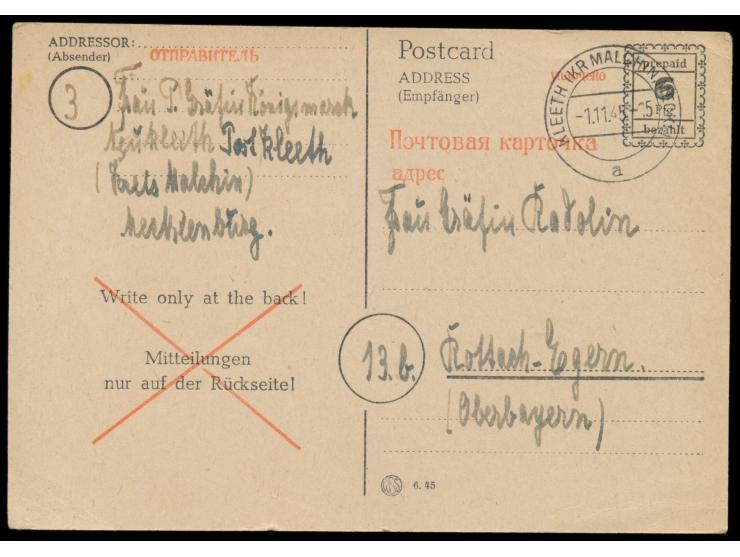 ADDRESSOR:
(Absender)
ОТПРАВИТЕЛЬ
3
Frau P. Gräfin Königsmarck
Neukleeth Post Kleeth
(Kreis Malchin)
Mecklenburg.
Write only at the back!
Mitteilungen
nur auf der Rückseite!
Postcard
ADDRESS
(Empfänger)
Почтовая карточка
адрес
KLEETH (KR MALCHIN
-1.11.45
a
prepaid
bezahlt
Frau Gräfin Radolin
13.b.
Rottach-Egern.
(Oberbayern)
6. 45